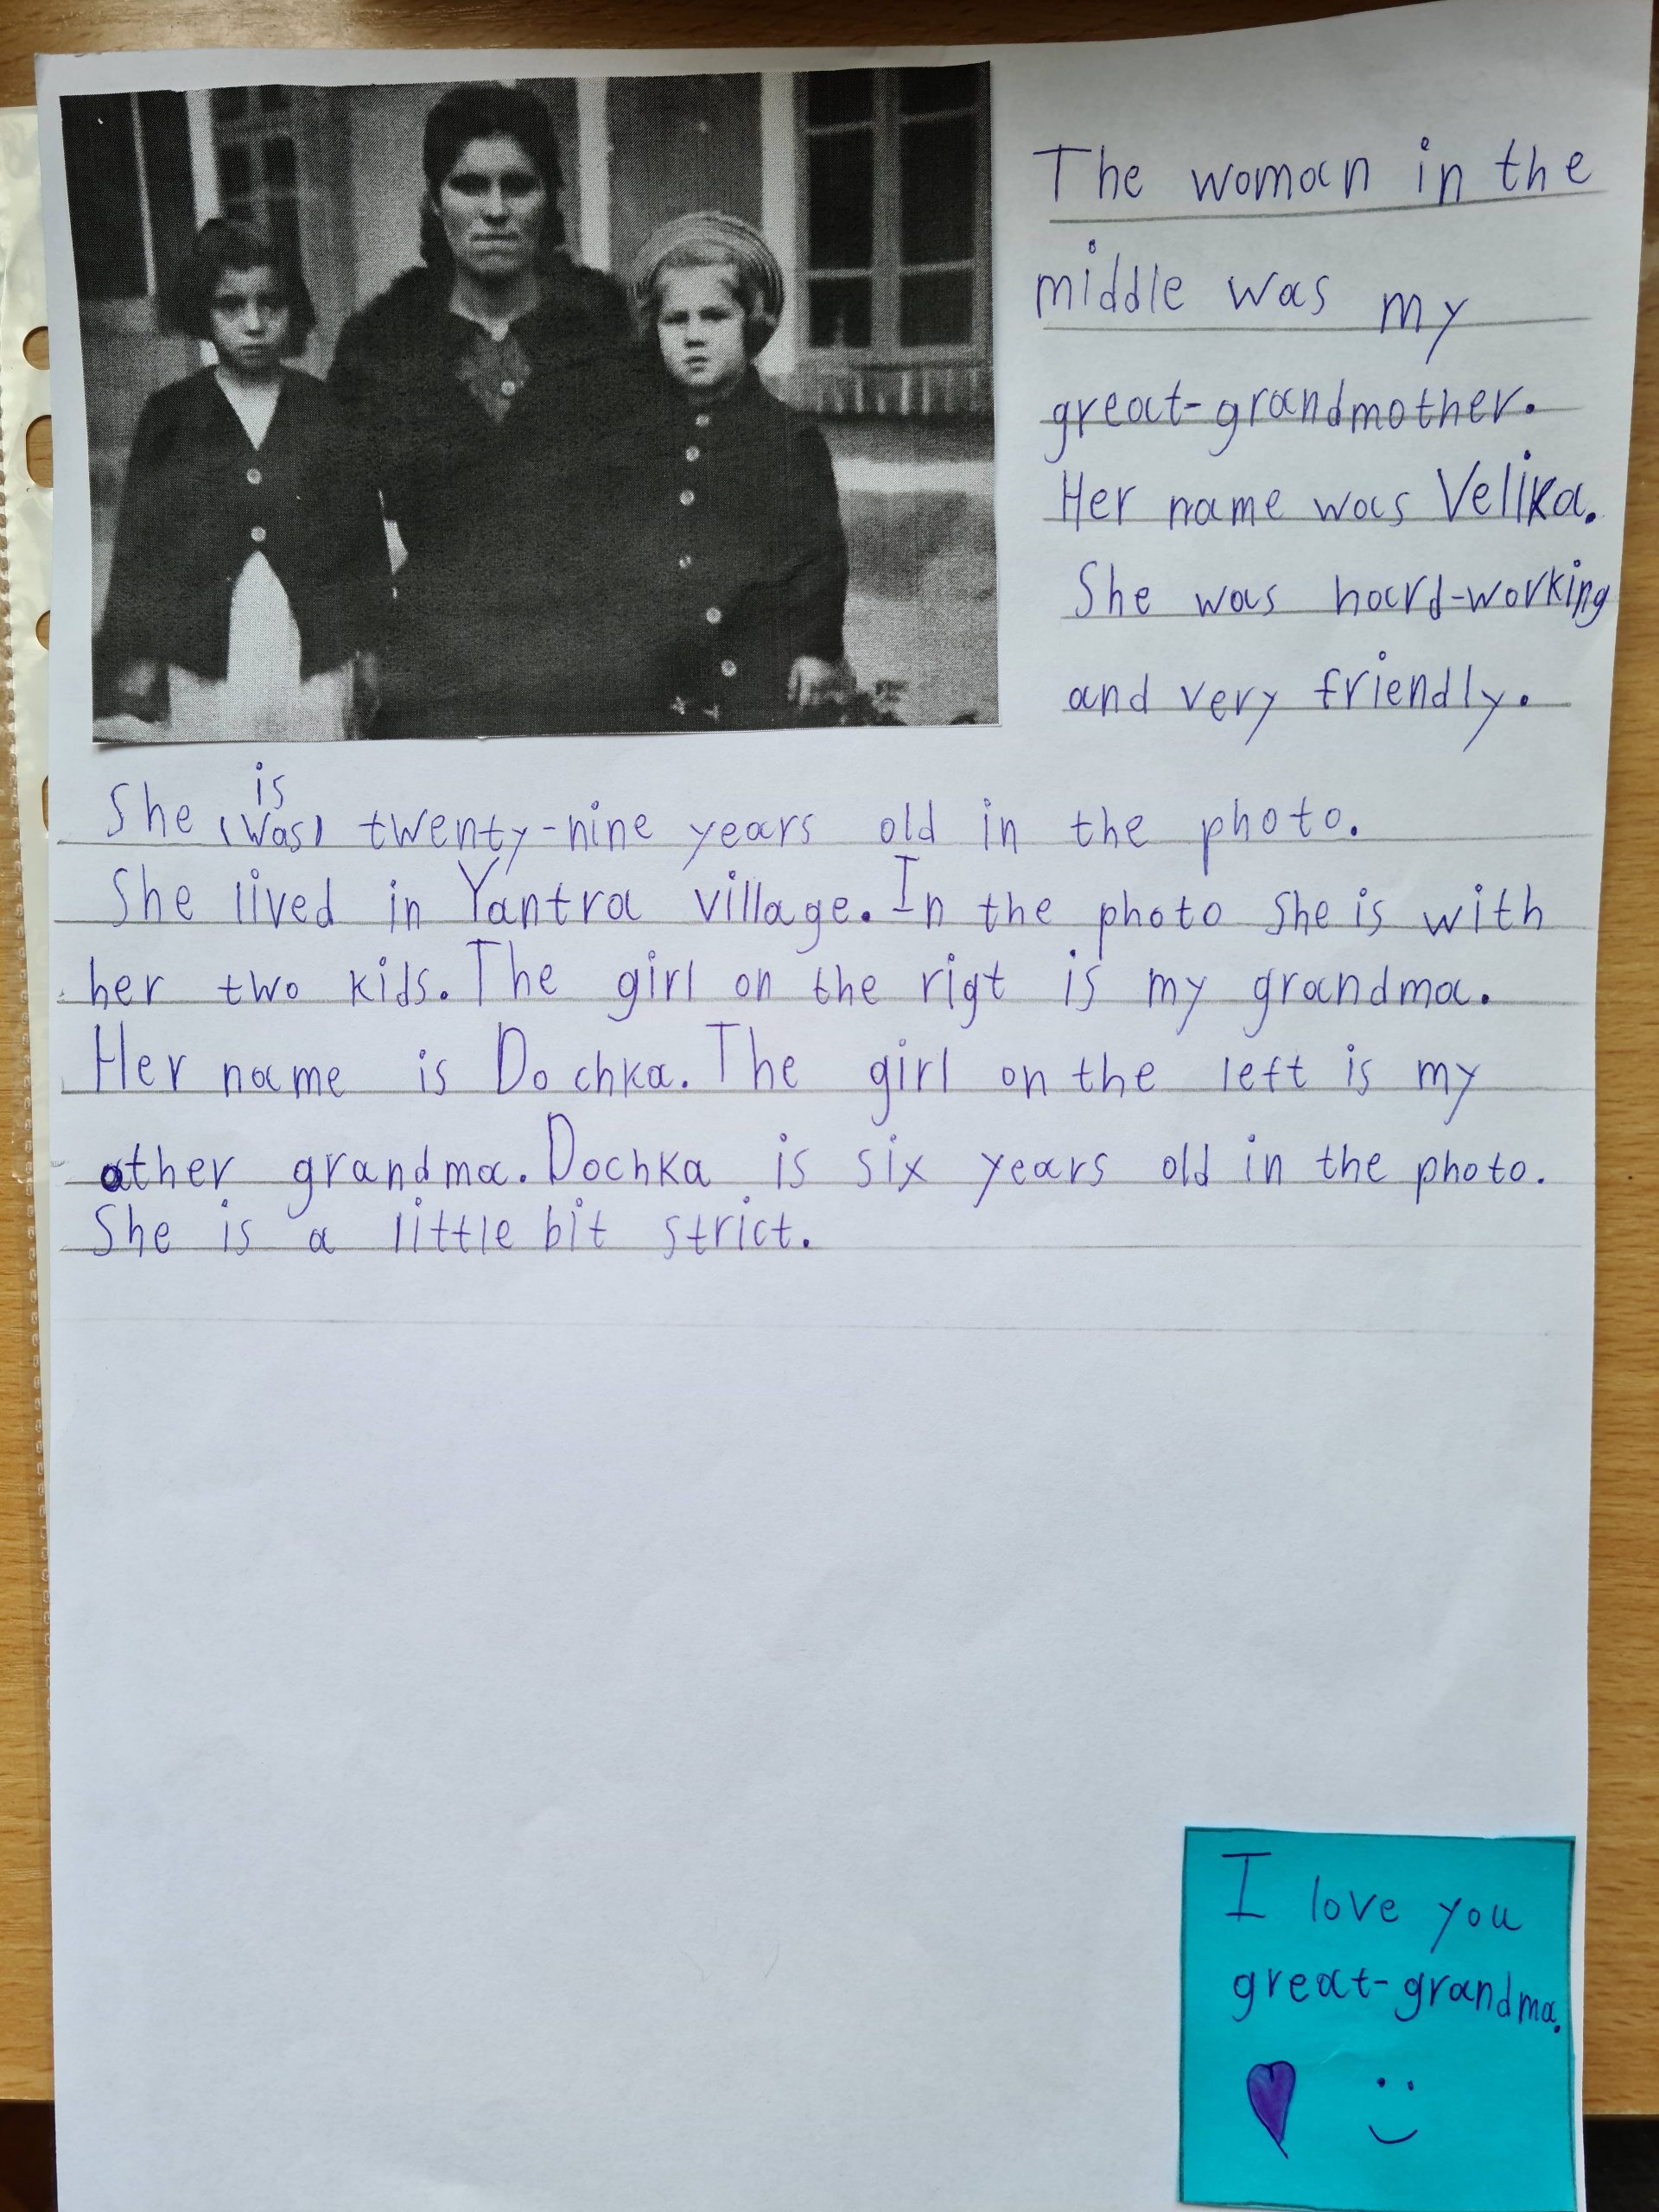 The woman in the
middle was my
great-grandmother.
Her name was Velika.
She was hard-working
and very friendly.
is
She (was) twenty-nine years old in the photo.
She lived in Yantra village. In the photo she is with
her two kids. The girl on the rigt is my grandma.
Her name is Dochka. The girl on the left is my
other grandma. Dochka is six years old in the photo.
She is a little bit strict.
I love you
great-grandma.